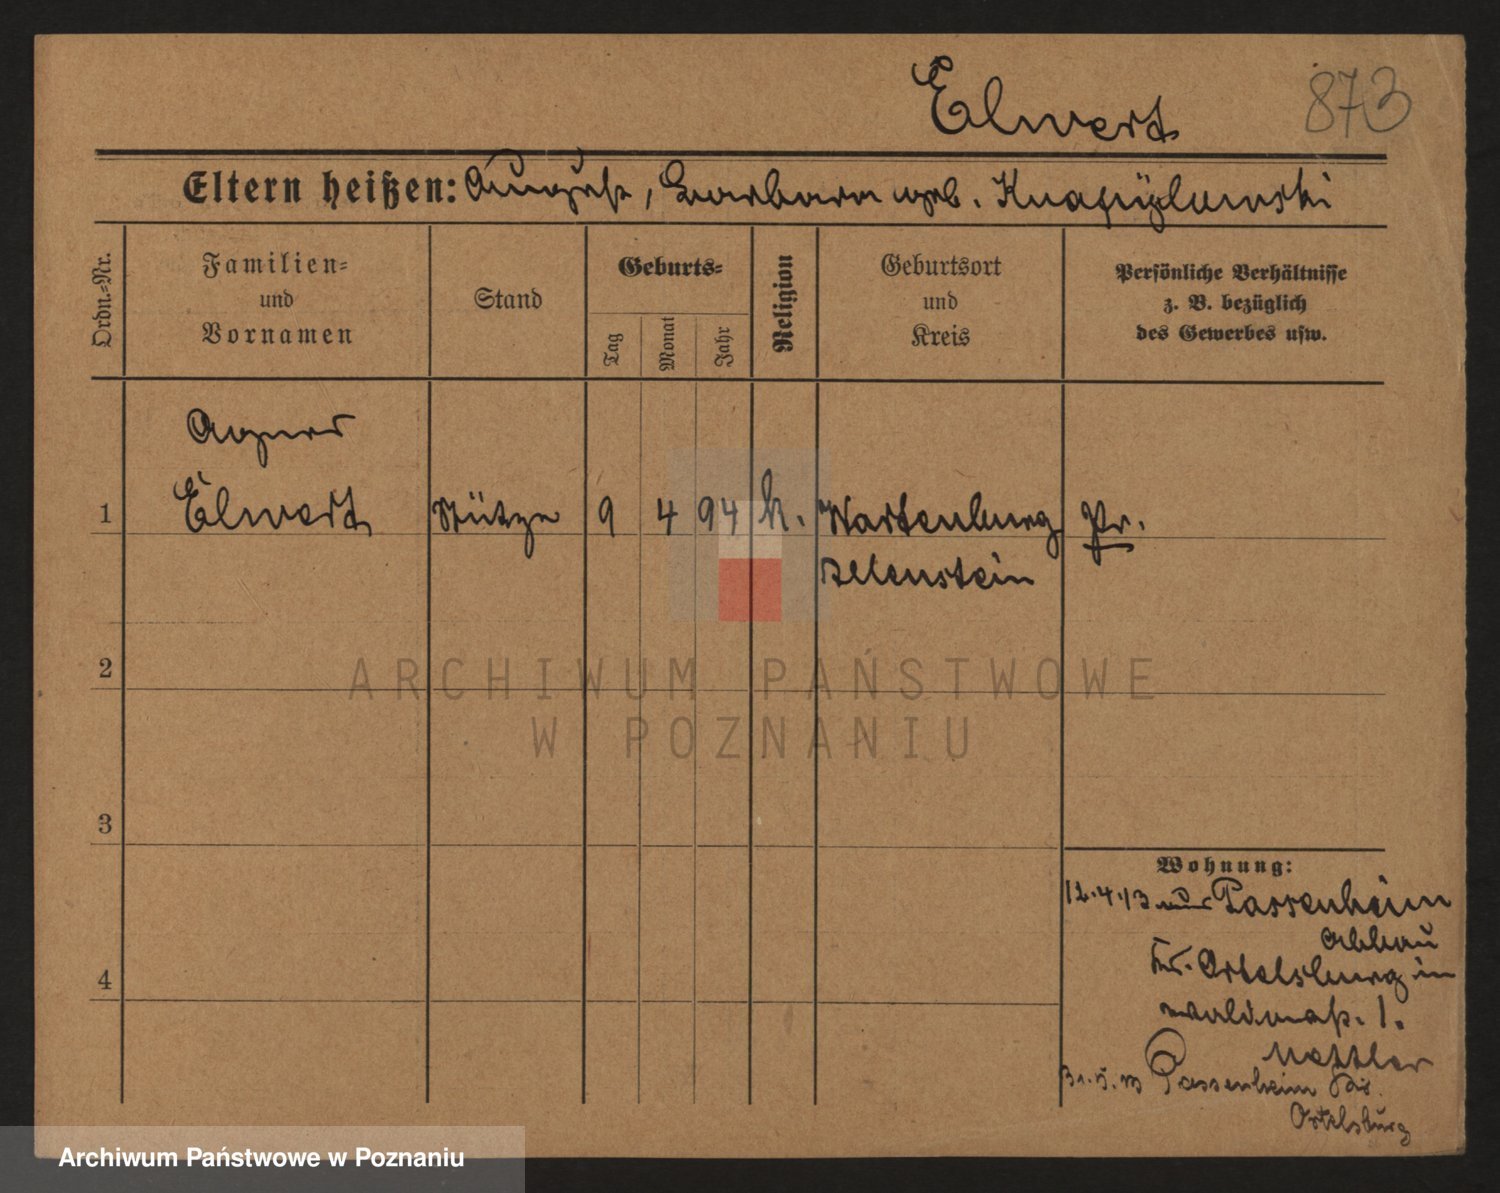 Elwert 873
Eltern heißen: August, Barbara geb.
Ordn.=Nr.
Familien=
und
Vornamen
Stand
Geburts=
Tag
Monat
Jahr
Religion
Geburtsort
und
Kreis
Persönliche Verhältnisse
z. B. bezüglich
des Gewerbes usw.
Agnes
1 Elwert Stütze 9 4 94 k. Wartenburg Pr.
Allenstein
2
ARCHIWUM PAŃSTWOWE
W POZNANIU
3
4
Wohnung:
12.4.13 Passenheim
Abbau
Kr. Ortelsburg in
Waldmastr. 1.
Mettler
31.5.13 Passenheim Kr.
Ortelsburg
Archiwum Państwowe w Poznaniu